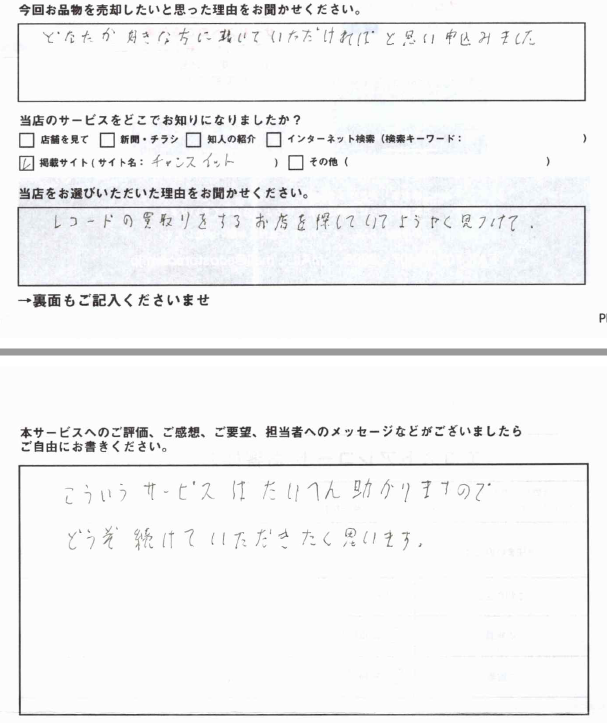 今回お品物を売却したいと思った理由をお聞かせください。
どなたか 好きな方に聴いていただければ と思い 申込みました
当店のサービスをどこでお知りになりましたか？
□ 店舗を見て □ 新聞・チラシ □ 知人の紹介 □ インターネット検索（検索キーワード：　　　）
☑ 掲載サイト（サイト名：チャンスイット　　） □ その他（　　　）
当店をお選びいただいた理由をお聞かせください。
レコードの買取りをする お店を探していて ようやく見つけて.
→裏面もご記入くださいませ
本サービスへのご評価、ご感想、ご要望、担当者へのメッセージなどがございましたら
ご自由にお書きください。
こういう サービス は たいへん 助かりますので
どうぞ 続けて いただきたく思います。